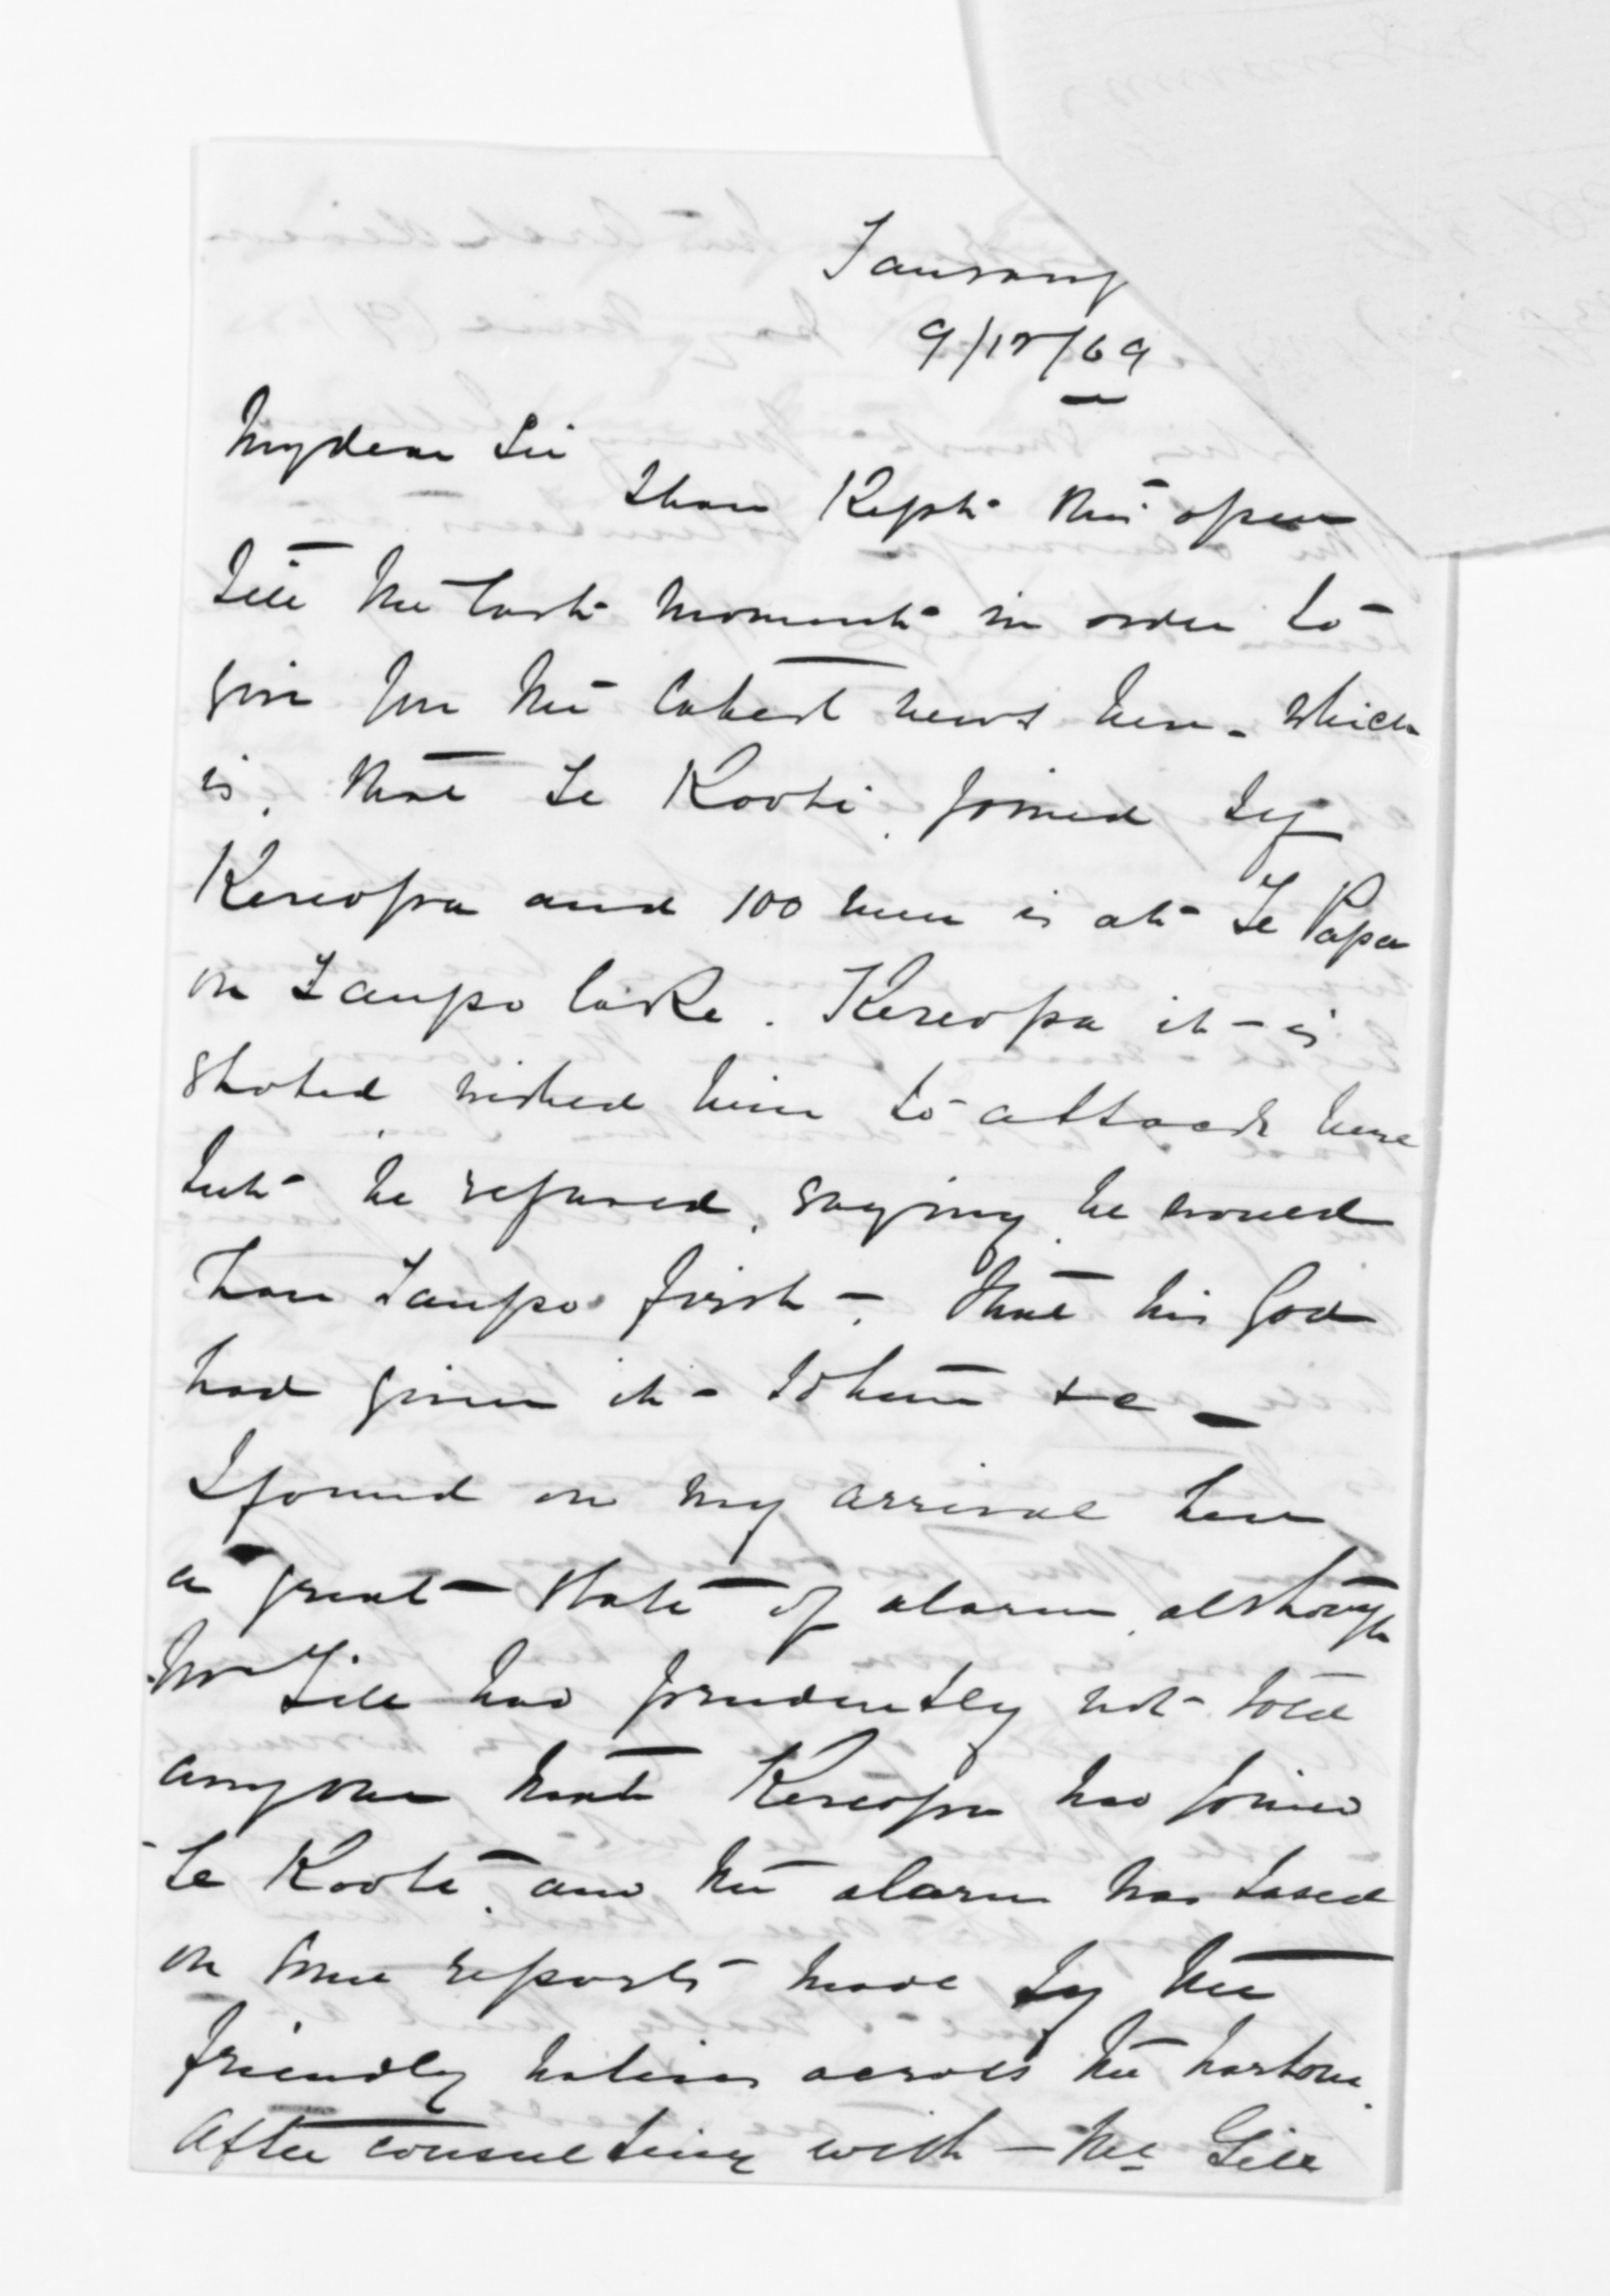 Taurang
9/12/69
My dear Sir
I have Kept this open
till the last moment in order to
give you the latest news here. which
is, that Te Kooti, joined by
Kereopa and 100 men is at Te Papa
on Taupo lake. Kereopa it is
stated wished him to attack here
but he refused, saying, he would
have Taupo first. That his God
had given it to him &c
I found on my arrival here
a great state of alarm, although
Mr Gill had prudently not told
anyone that Kereopa had joined
Te Kooti, and the alarm was based
on some reports made by the
friendly natives across the harbour.
After consulting with Mr Gill